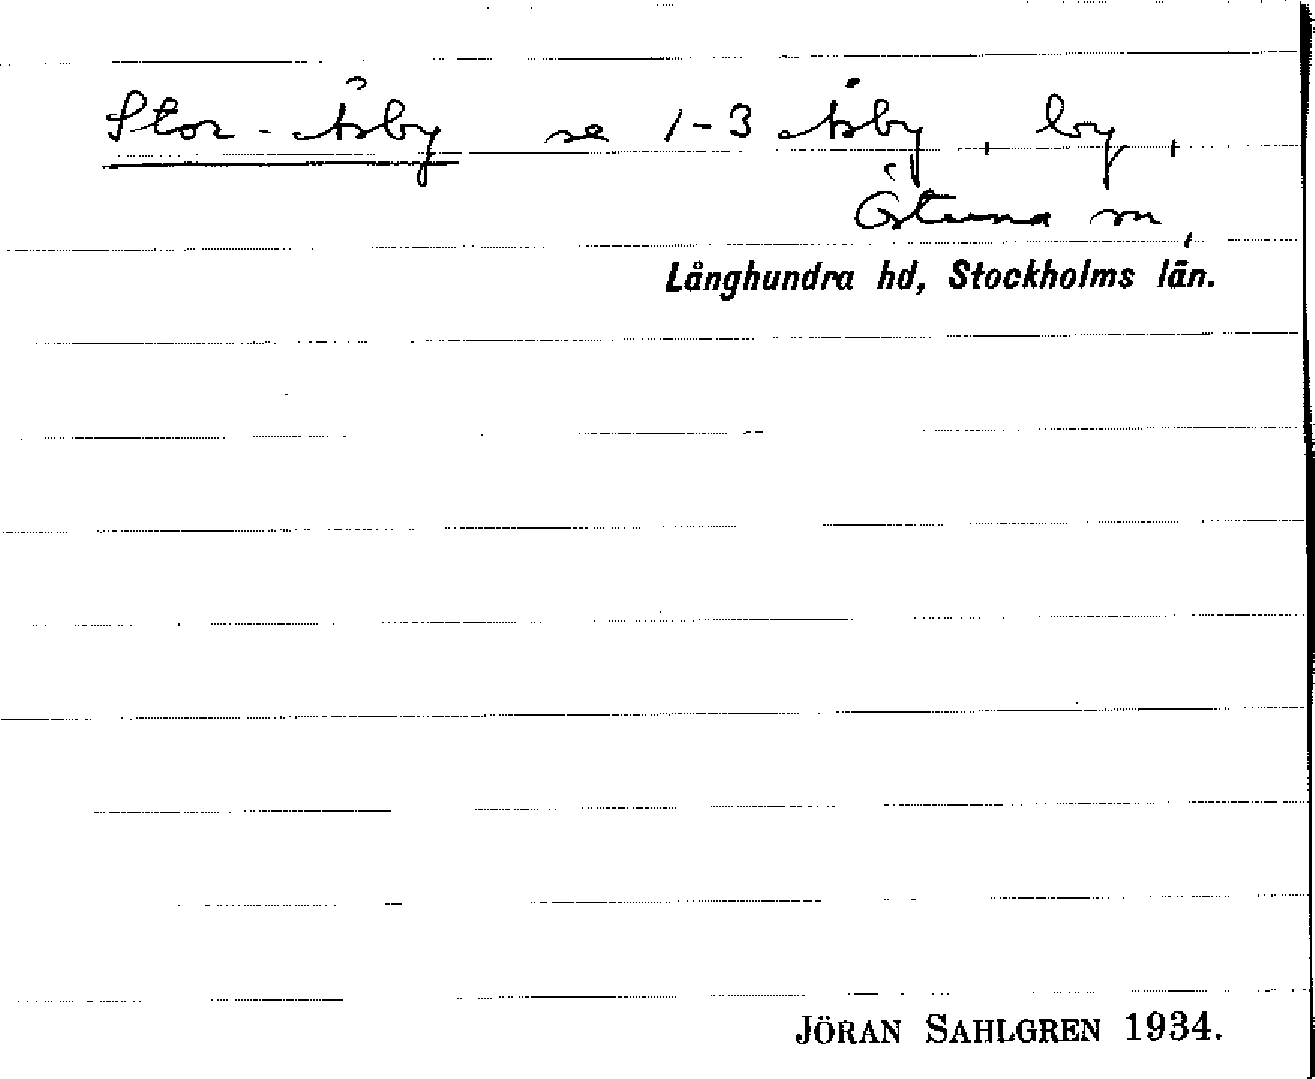 Stor-Åsby se 1-3 Åsby, by,
Östuna sn,
Långhundra hd, Stockholms län.
JÖRAN SAHLGREN 1934.